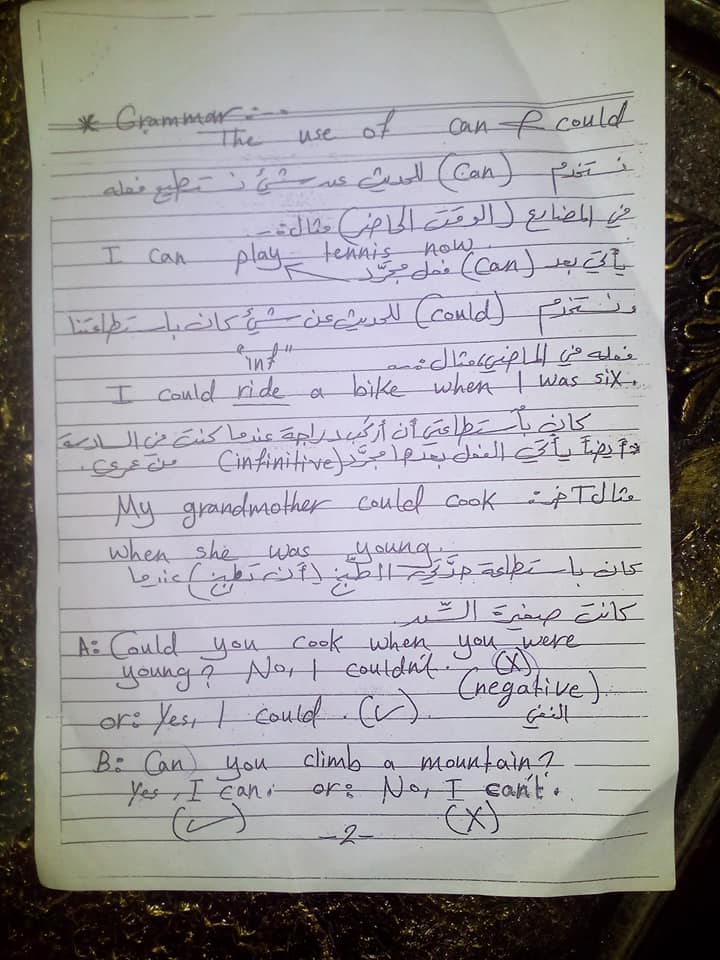 * Grammar:--
The use of can & could
نستخدم (Can) للحديث عن شئ نستطيع فعله
في المضارع (الوقت الحاضر) مثال:-
I can play tennis now.
يأتي بعد (Can) فعل مجرَّد
ونستخدم (Could) للحديث عن شئ كان باستطاعتنا
فعله في الماضي، مثال:-
"inf"
I could ride a bike when I was six.
كان بأستطاعتي أن أركب دراجة عندما كنت في السادسة
من عمري.
وأيضاً يأتي الفعل بعدها مجرَّد (infinitive)
مثال آخر: My grandmother could cook
when she was young.
كان باستطاعة جدَّتي الطبخ (أن تطبخ) عندما
كانت صغيرة السِّن.
A: Could you cook when you were
young? No, I couldn't. (X)
(negative)
or: Yes, I could. (✓). النفي
B: Can you climb a mountain?
Yes, I can. or: No, I can't.
(✓) (X)
-2-